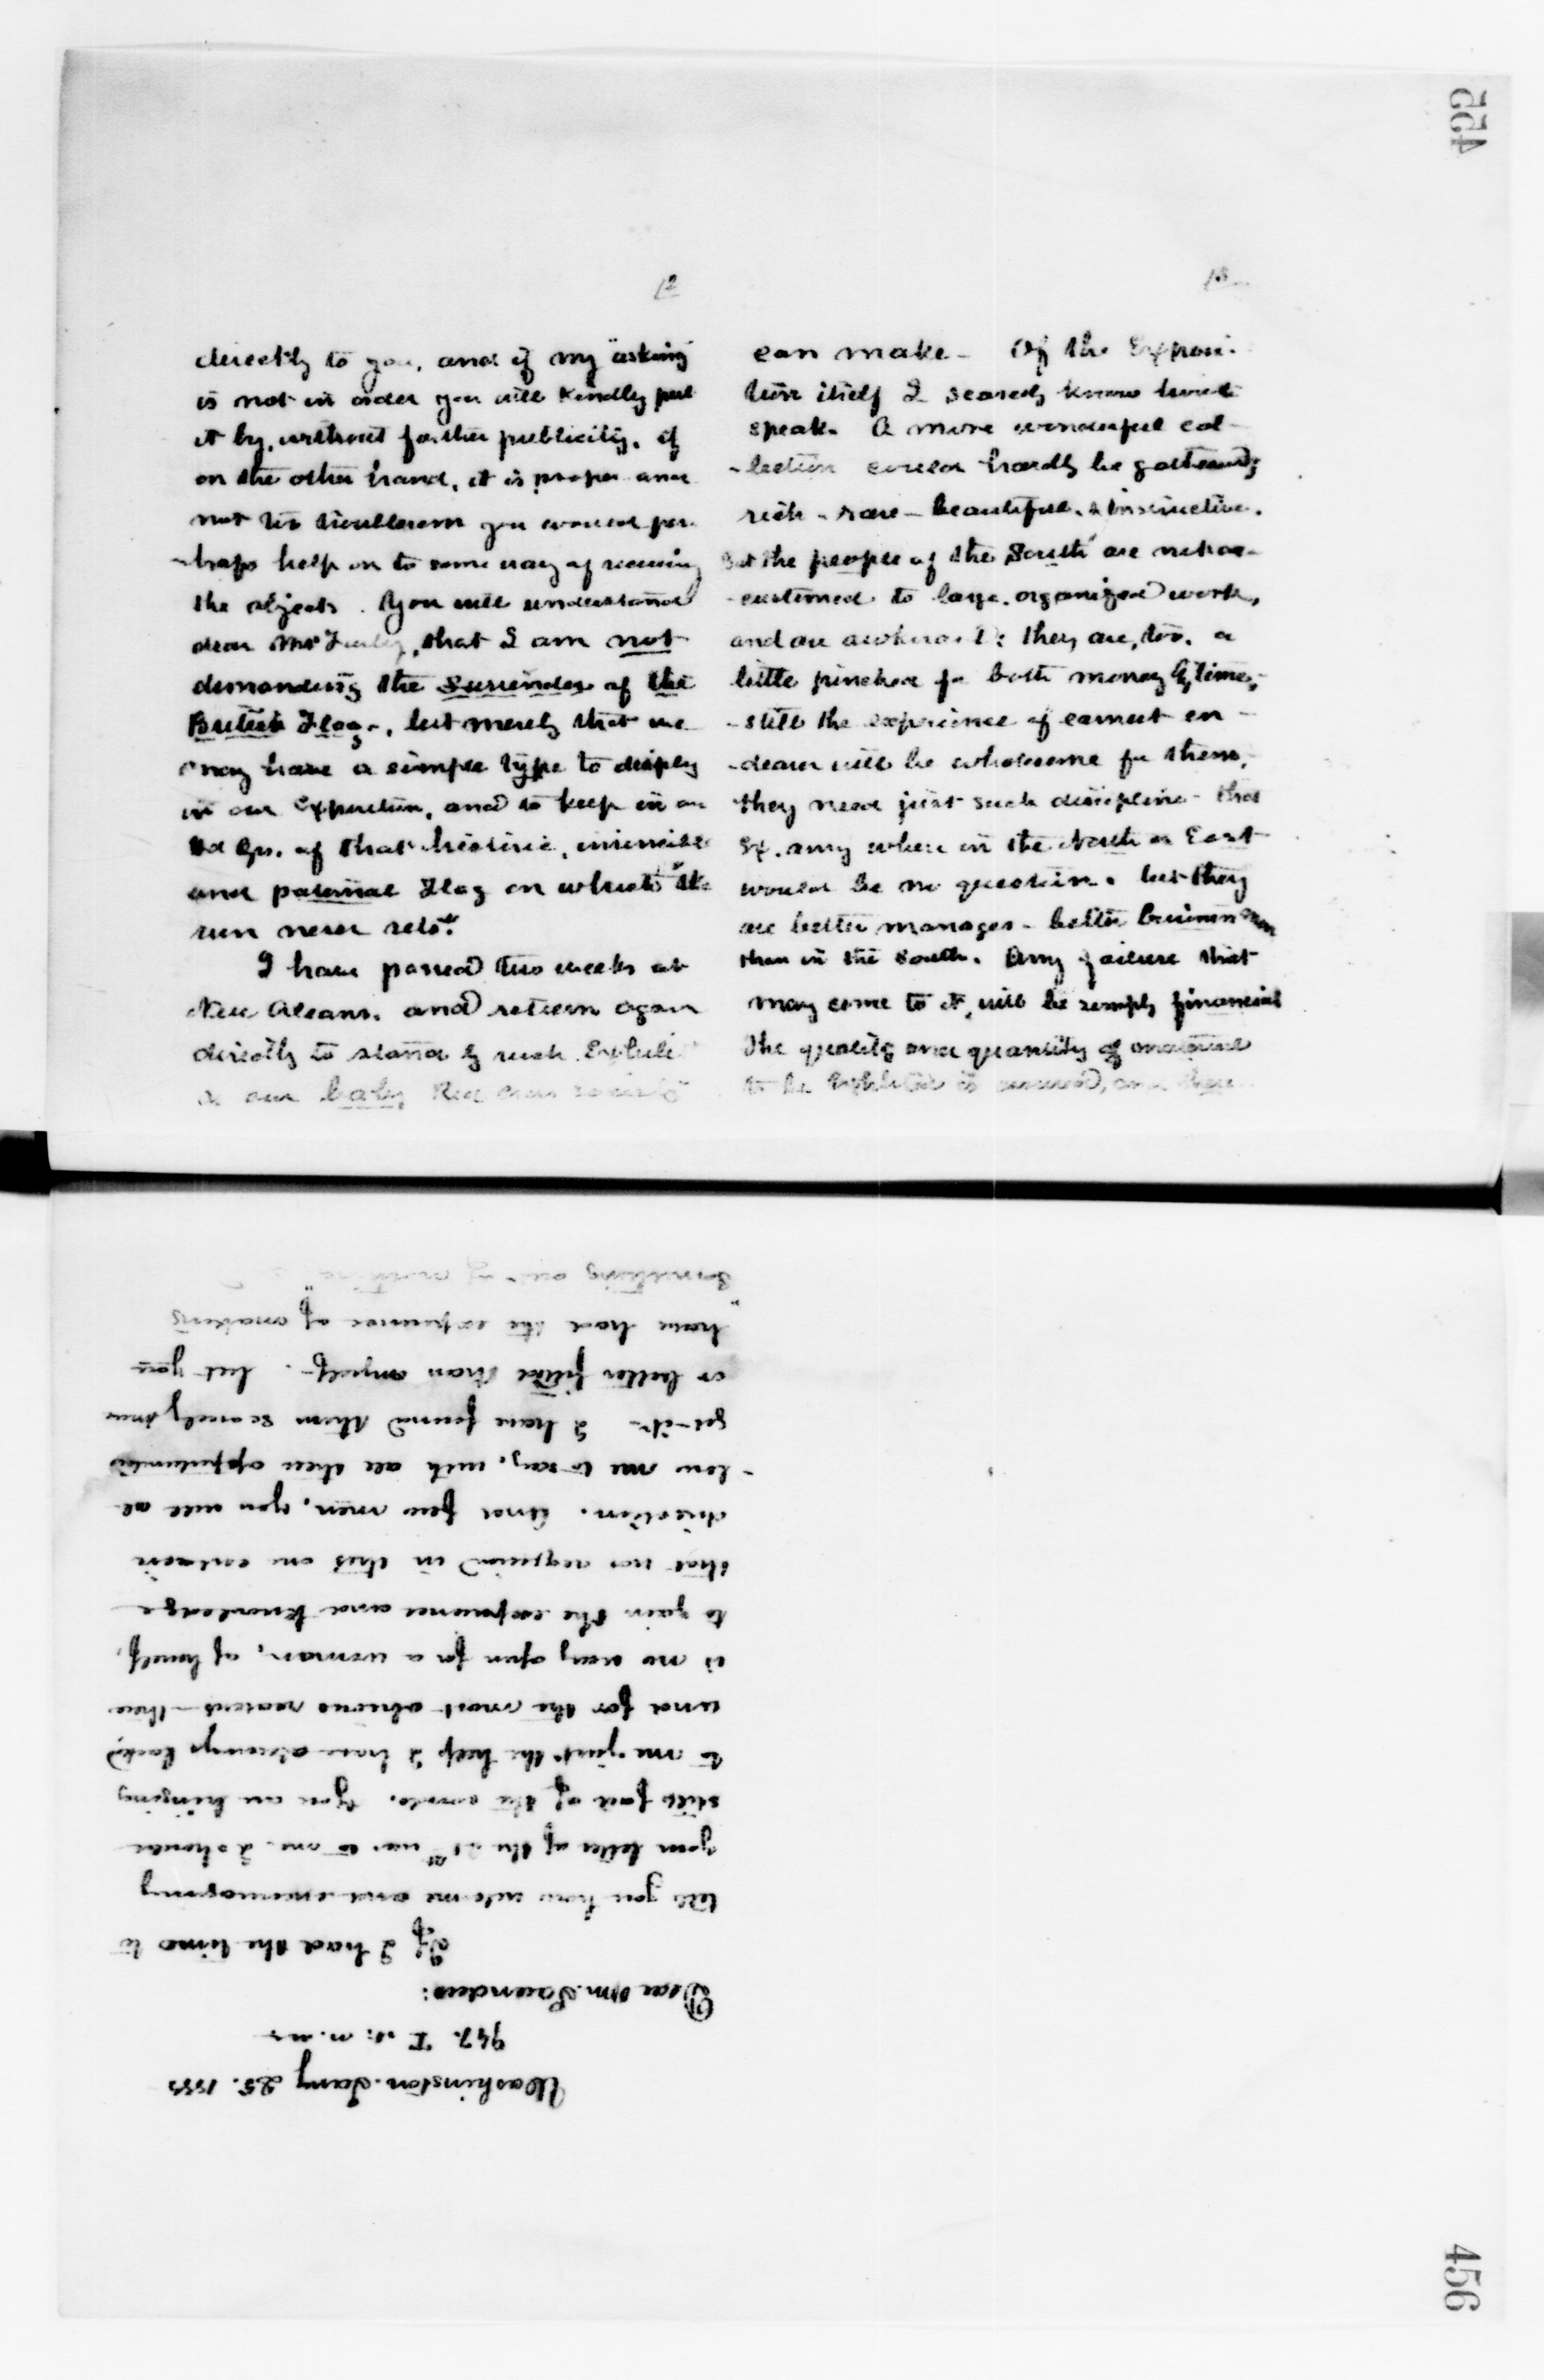 455
12
directly to you, and if my "asking"
is not in order you will kindly put
it by, without further publicity. if
on the other hand, it is proper and
not too troublesom you would per-
-haps help on to some way of receiving
the objects. You will understand
dear Mr Furley, that I am not
demanding the Surrender of the
British Flag-, but merely that we
may have a simple type to display
in our Exposition, and to keep in our
Hd Qrs. of that historic, invincible
and paternal Flag on which "the
sun never sets".
I have passed two weeks at
New Orleans. and return again
directly to stand by such Exhibit
as our baby Red Cross society
13
can make - Of the Exposi-
tion itself I scarcely know how to
speak. A more wonderful col-
-lection could hardly be gathered,
rich - rare - beautiful, & instructive.
But the people of the "South" are not ac-
-customed to large, organized work,
and are awkward; they are, too, a
little pinched for both money & time,-
-still the experience of earnest en-
-deavor will be wholesome for them,
they need just such discipline - This
Ex. any where in the North or East
would be no question. but they
are better manages - better business men
than in the South. Any failure that
may come to it, will be simply financial
The quality and quantity of material
to be Exhibited is assured, and there
456
Washington. Jany 25. 1885
947. T. st. n.w.
Dear Mr. Saunders:
If I had the time to
tell you how welcome and encouraging
your letter of the 21st was to me I should
still fail of the words. You are bringing
to me just the help I have always lacked
and for the most obvious reasons - there
is no way open for a woman, of herself,
to gain the experience and knowledge
that has acquired in this one extensive
direction. And few men, you will al-
-low me to say, with all their opportunities
get it - I have found them scarcely more
or better fitted than myself -. but you
have had the experience of "making
something out of nothing"